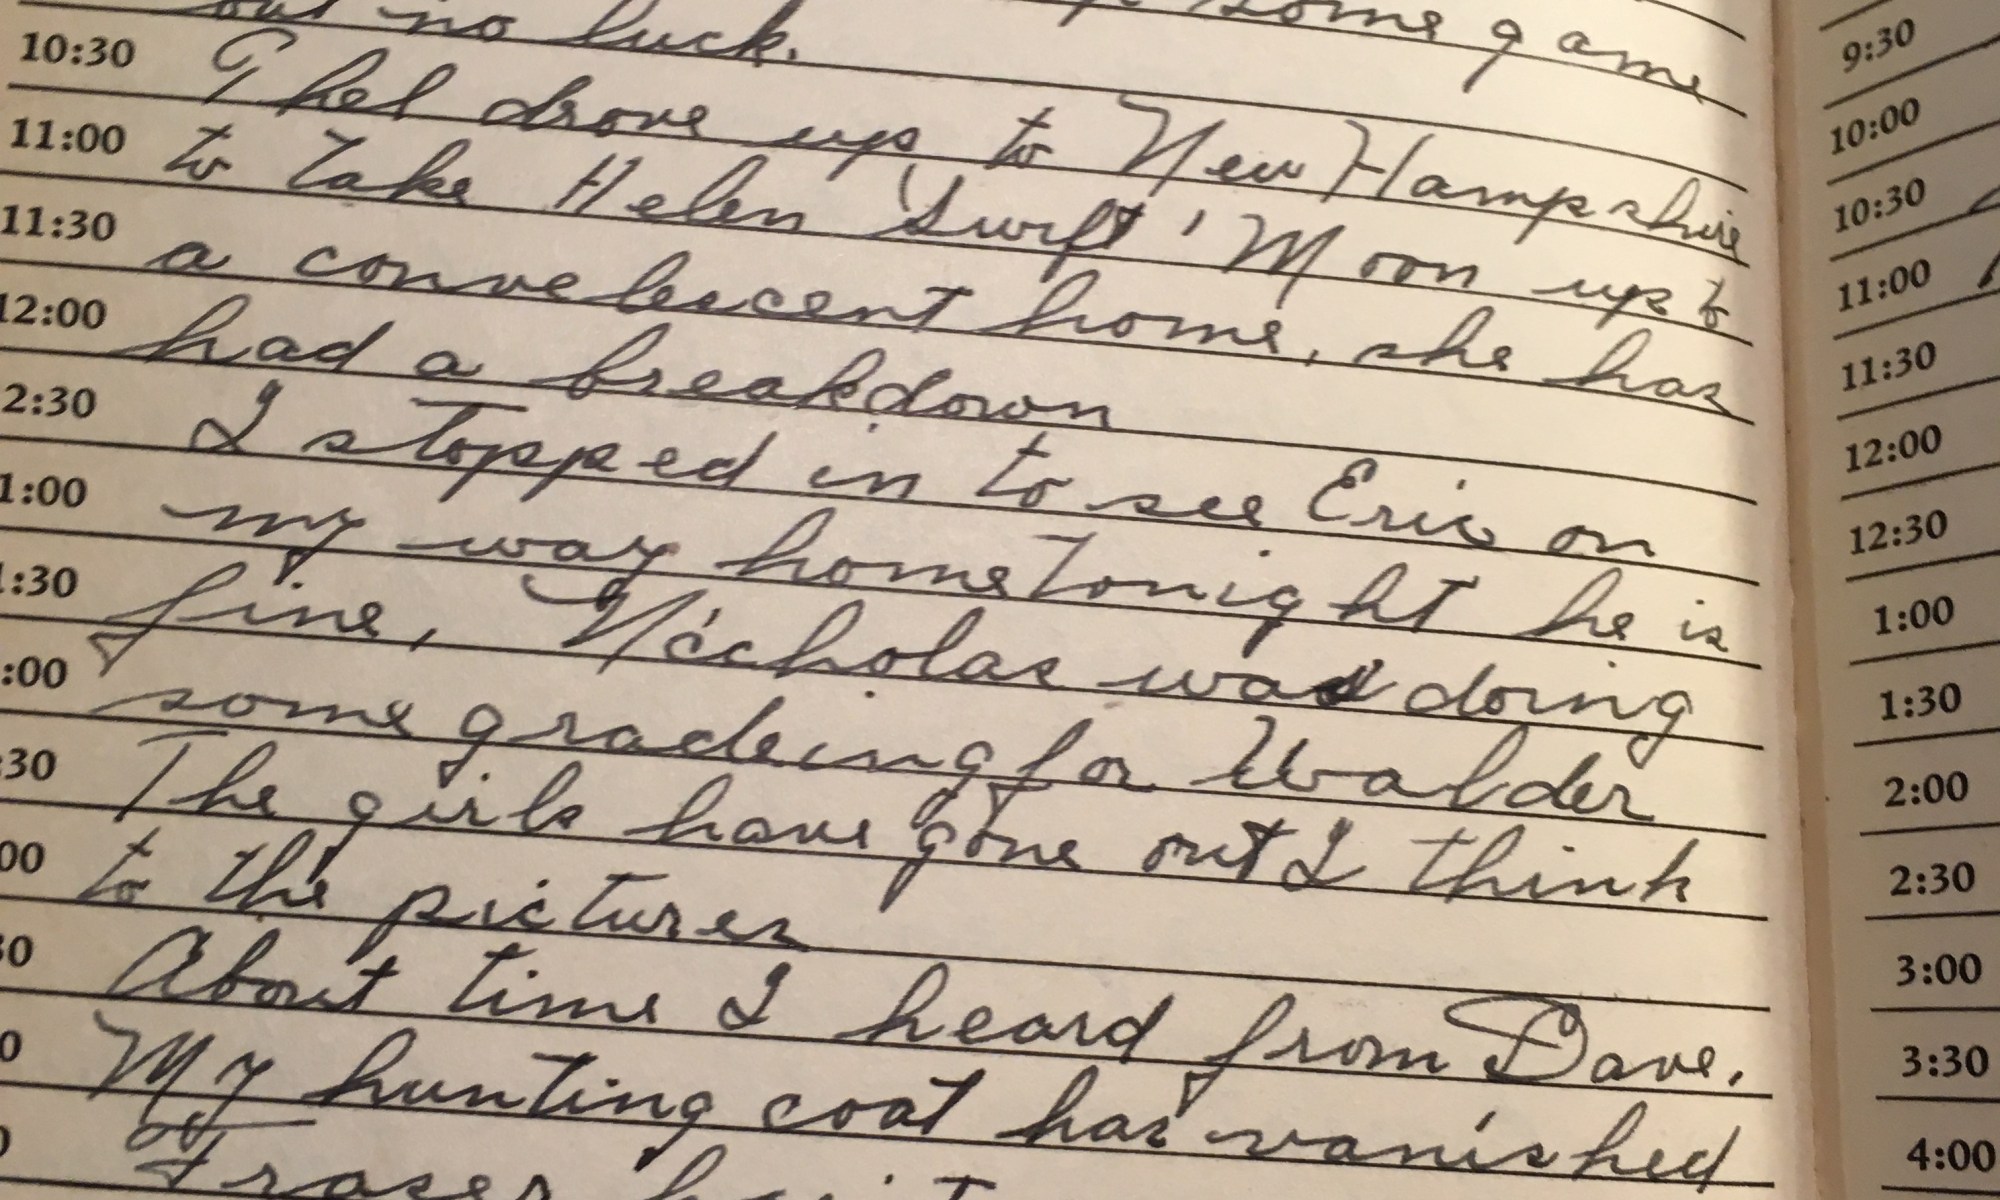 some game
but no luck.
10:30 Ghel drove up to New Hampshire
11:00 to take Helen Swift' Moon up to
11:30 a convelescent home, she has
12:00 had a breakdown
2:30 I stopped in to see Eric on
1:00 my way home tonight he is
1:30 fine, Nicholas was doing
:00 some gradeing for Walder
:30 The girls have gone out I think
00 to the pictures
30 About time I heard from Dave.
0 My hunting coat has vanished
9:30
10:00
10:30
11:00
11:30
12:00
12:30
1:00
1:30
2:00
2:30
3:00
3:30
4:00